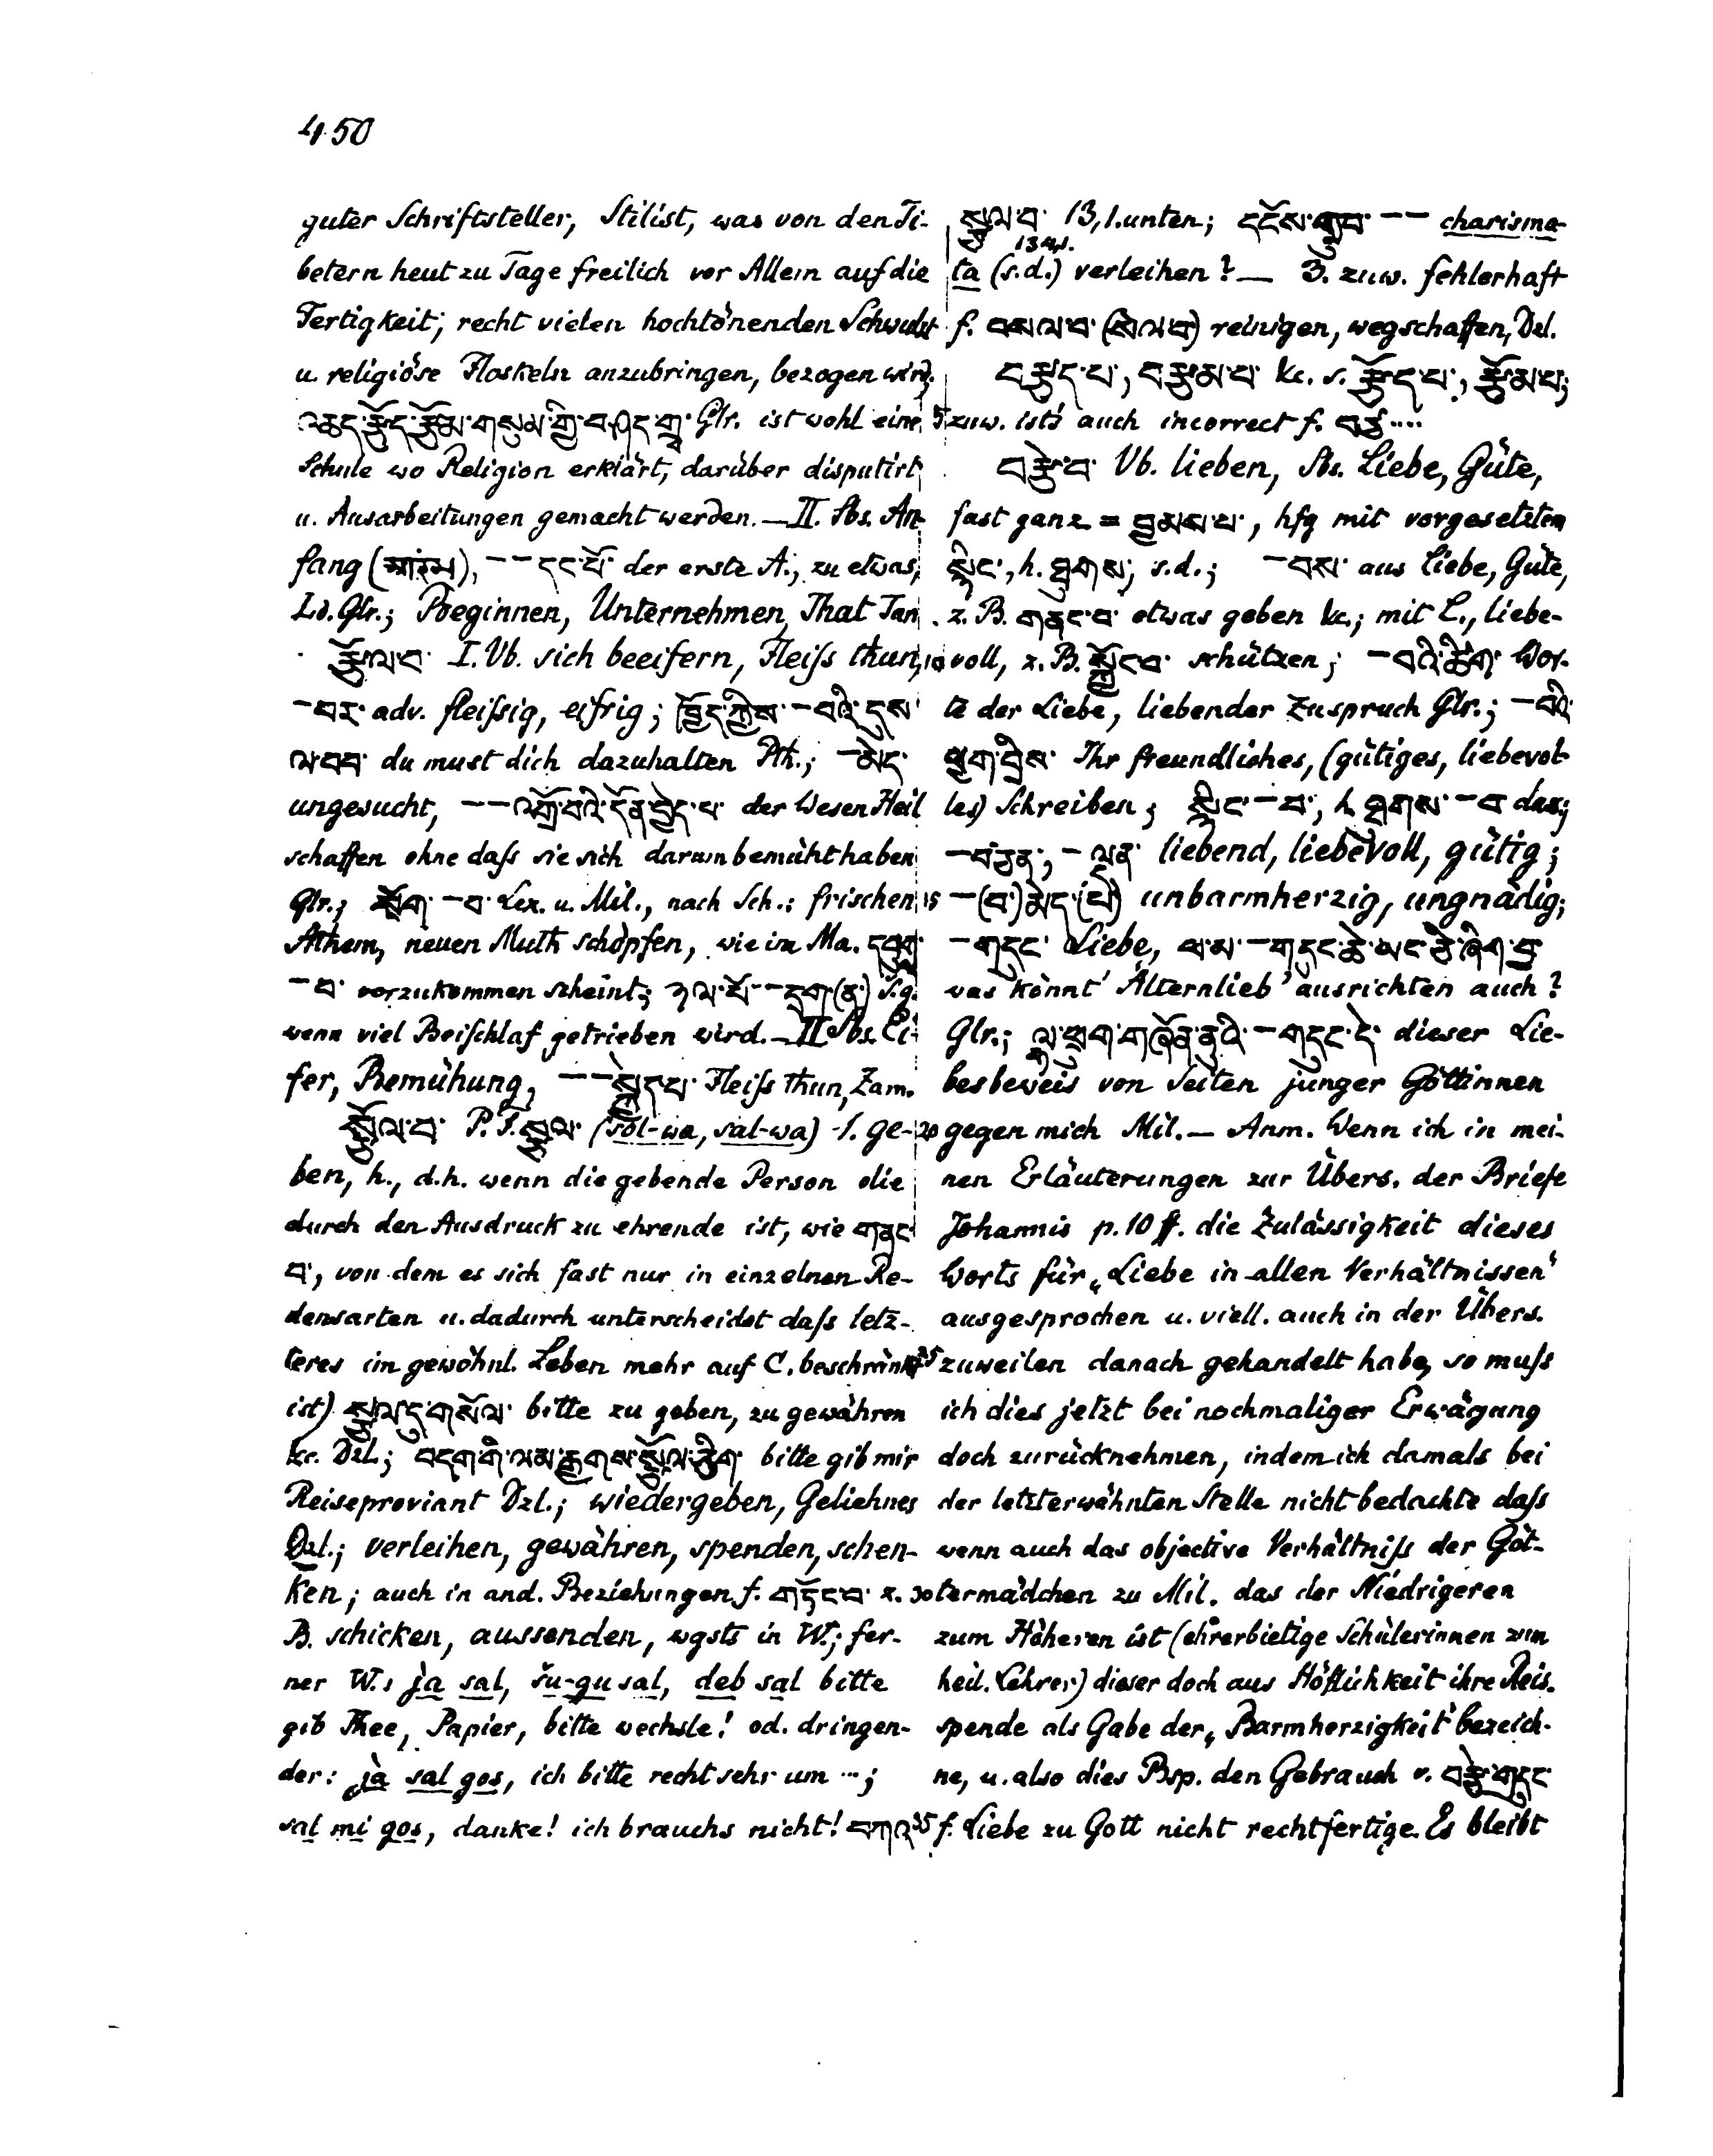 450
guter Schriftsteller, Stilist, was von den Ti-
betern heut zu Tage freilich vor Allem auf die
Fertigkeit, recht vielen hochtönenden Schwulst
u. religiöse Floskeln anzubringen, bezogen wird.
འཆད་རྩོད་རྩོམ་གསུམ་གྱི་བཤད་གྲྭ Glr. ist wohl eine
Schule wo Religion erklärt, darüber disputirt
u. Ausarbeitungen gemacht werden. — II. Sbs. An-
fang (आरंभ), -- དང་པོ་ der erste A., zu etwas,
Ld. Glr.; Beginnen, Unternehmen, That Tan.
རྩོལ་བ་ I. Vb. sich beeifern, Fleiſs thun,
-བར་ adv. fleiſsig, eifrig; ཁྱོད་ཀྱིས་ -བའི་དུས་
ལ་བབ་ du must dich dazuhalten Pth.; -མེད་
ungesucht, -- འགྲོ་བའི་དོན་བྱེད་པ་ der Wesen Heil
schaffen ohne daſs sie sich darum bemüht haben
Glr.; སྲོག་ -བ་ Lex. u. Mil., nach Sch.: frischen
Athem, neuen Muth schöpfen, wie im Ma. དབུགས་
-བ་ vorzukommen scheint; ཉལ་པོ་ -- དྲག་(ན་) S.g.
wenn viel Beiſchlaf getrieben wird. — II Sbs. Ei-
fer, Bemühung, -- སྐྱེད་པ་ Fleiſs thun, Zam.
སྩོལ་བ་ P. F. སྩལ་ (sol-wa, sal-wa) 1. ge-
ben, h., d.h. wenn die gebende Person die
durch den Ausdruck zu ehrende ist, wie གནང་
བ་, von dem es sich fast nur in einzelnen Re-
densarten u. dadurch unterscheidet daſs letz-
teres im gewöhnl. Leben mehr auf C. beschränkt
ist) སྩལ་དུ་གསོལ་ bitte zu geben, zu gewähren
&c. Dzl.; བདག་གི་ལམ་རྒྱགས་སྩོལ་ཅིག་ bitte gib mir
Reiseproviant Dzl.; wiedergeben, Geliehnes
Dzl.; verleihen, gewähren, spenden, schen-
ken; auch in and. Beziehungen f. གཏོང་བ་ z.
B. schicken, aussenden, wgsts in W.; fer-
ner W.: j̀a sal, šu-gu sal, deb sal bitte
gib Thee, Papier, bitte wechsle! od. dringen-
der: j̀a sal gos, ich bitte recht sehr um ...;
sal mi gos, danke! ich brauchs nicht! བཀའ་
སྩལ་བ་ 13, 1. unten; དངོས་གྲུབ་ -- charisma-
134,1.
ta (s.d.) verleihen? — 3. zuw. fehlerhaft
f. བསལ་བ་ (སེལ་བ་) reinigen, wegschaffen, Dzl.
བརྩད་པ་, བརྩམ་པ་ &c. s. རྩོད་པ་, རྩོམ་པ་;
5 zuw. ists auch incorrect f. བཙ....
བརྩེ་བ་ Vb. lieben, Sbs. Liebe, Güte,
fast ganz = བྱམས་པ་, hfg mit vorgesetztem
སྙིང་, h. ཐུགས་, s.d.; -བས་ aus Liebe, Güte,
z. B. གནང་བ་ etwas geben &c.; mit L., liebe-
10 voll, z. B. སྐྱོང་བ་ schützen; -བའི་ཚིག་ Wor-
te der Liebe, liebender Zuspruch Glr.; -བའི་
ཕྱག་བྲིས་ Ihr freundliches, (gütiges, liebevol-
les) Schreiben; སྙིང་ -བ་, h. ཐུགས་ -བ dass;
-བ་ཅན་, -ལྡན་ liebend, liebevoll, gütig;
15 -(བ་)མེད་(པ་) unbarmherzig, ungnädig;
-གདུང་ Liebe, ཕ་མ་ -གདུང་ཆེ་ཡང་ཅི་ཞིག་བྱ་
was könnt' Älternlieb' ausrichten auch?
Glr.; ལྷ་སྲས་གཞོན་ནུའི་ -གདུང་དེ་ dieser Lie-
besbeweis von Seiten junger Göttinnen
20 gegen mich Mil. — Anm. Wenn ich in mei-
nen Erläuterungen zur Übers. der Briefe
Johannis p. 10 ff. die Zulässigkeit dieses
Worts für „Liebe in allen Verhältnissen“
ausgesprochen u. viell. auch in der Übers.
25 zuweilen danach gehandelt habe, so muſs
ich dies jetzt bei nochmaliger Erwägung
doch zurücknehmen, indem ich damals bei
der letzterwähnten Stelle nicht bedachte daſs
wenn auch das objective Verhältniſs der Göt-
30 termädchen zu Mil. das der Niedrigeren
zum Höheren ist (ehrerbietige Schülerinnen zum
heil. Lehrer) dieser doch aus Höflichkeit ihre Reis-
spende als Gabe der „Barmherzigkeit“ bezeich-
ne, u. also dies Bsp. den Gebrauch v. བརྩེ་གདུང་
35 f. Liebe zu Gott nicht rechtfertige. Es bleibt